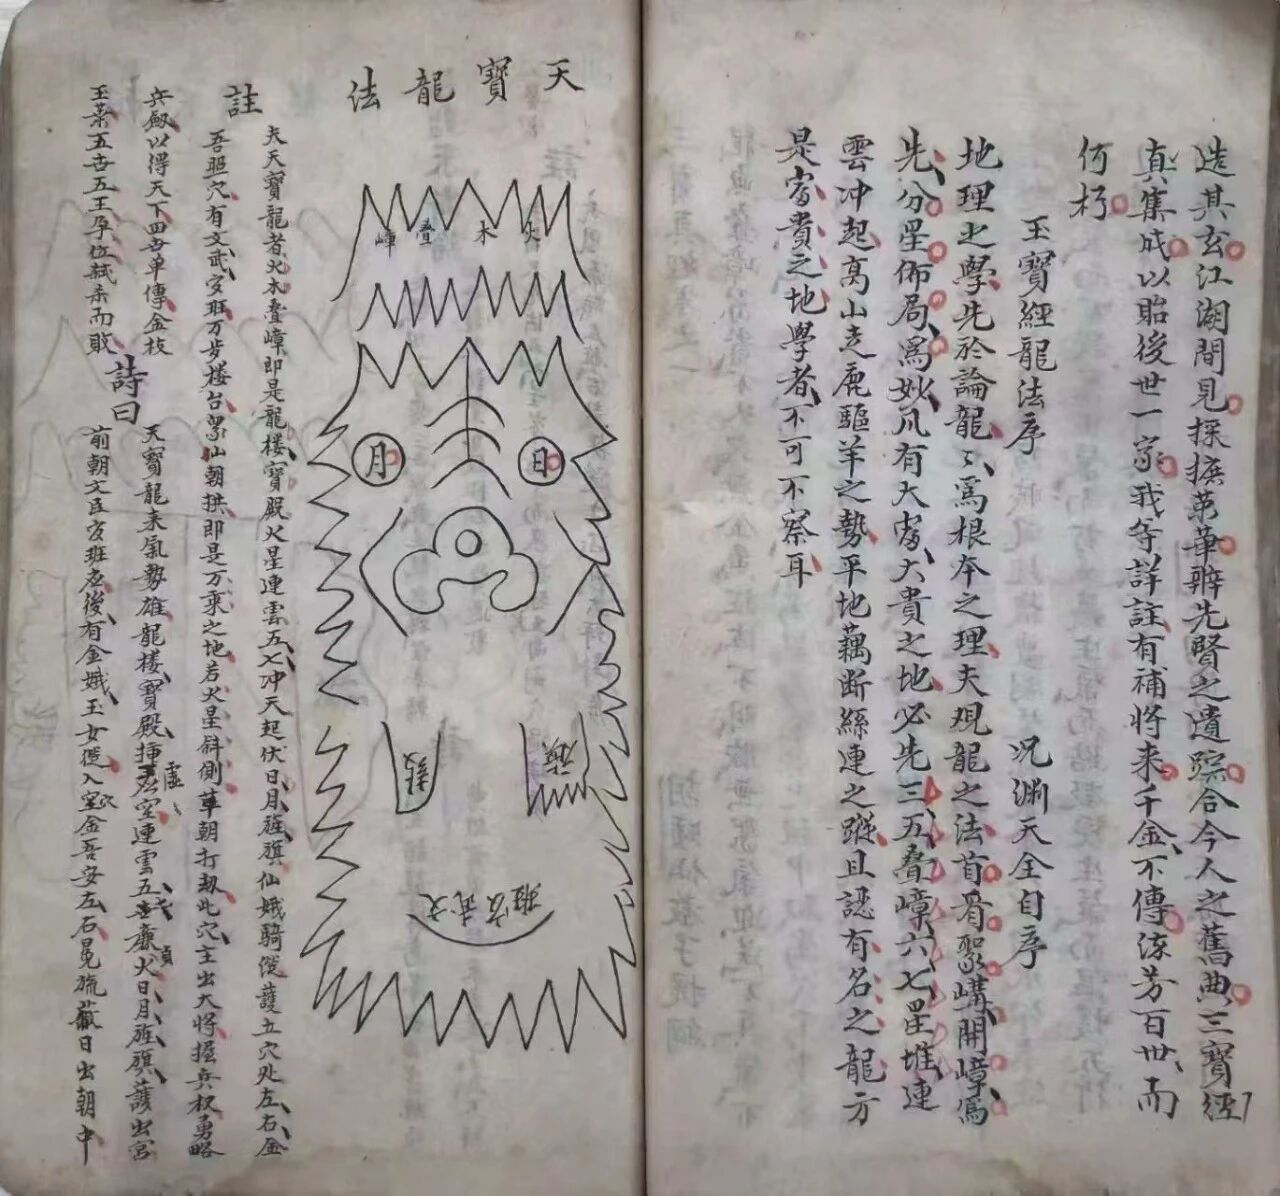 造其玄江湖間見採摭菁華辦先賢之遺踪合今人之舊典三寶經
真集成以貽後世一家我等詳註有補將来千金不傳流芳百世而
何朽
玉寶經龍法序 况淵天全自序
地理之學先於論龍〻為根本之理夫觀龍之法首看聚講開嶂為
先分星佈局為妙凡有大富大貴之地必先三五叠嶂六七星堆連
雲冲起高山走鹿驅羊之勢平地藕断絲連之蹤且認有名之龍方
是富貴之地學者不可不察耳
天寶龍法
火木叠嶂
日
月
旗
文武官班
註
夫天寶龍者火木叠嶂即是龍楼寶殿火星連雲五七冲天起伏日月旌旗仙娥騎從護立穴处左右金
吾照穴有文武安班万步楼台眾山朝拱即是万乘之地若火星斜側華朝打劫此穴主出大将握兵权勇略
兵劔以得天下四世单傳金枝
玉葉五世五王孕位弑杀而敗
詩曰
天寶龍来氣勢雄龍楼寶殿挿虚空連雲五七廉貞火日月旌旗護出宮
前朝文臣安班左後有金娥玉女從入穴金吾安左右冕旒蔽日出朝中